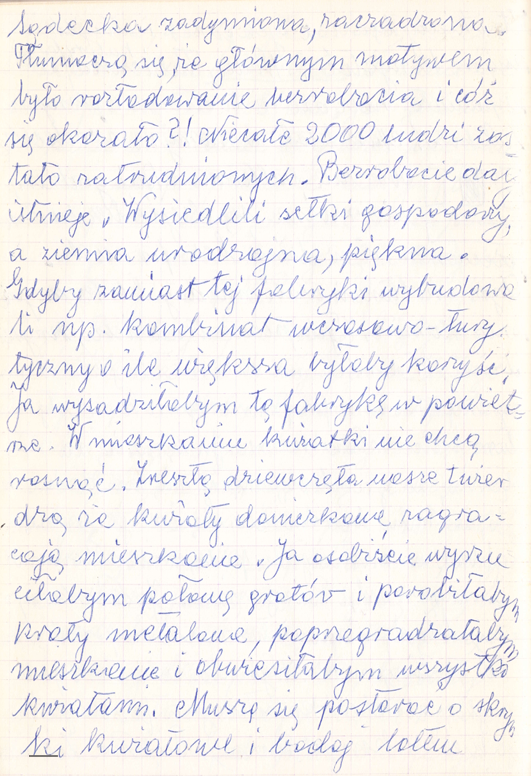 Sądecka zadymiona, zaczadzona.
Tłumaczą się, że głównym motywem
było rozładowanie bezrobocia i cóż
się okazało?! Niecałe 2000 ludzi zos
tało zatrudnionych. Bezrobocie dalej
istnieje. Wysiedlili setki gospodarzy,
a ziemia urodzajna, piękna.
Gdyby zamiast tej fabryki wybudowa
li np. kombinat wczasowo-tury
tyczny o ile większa byłaby korzyść,
Ja wysadziłabym tą fabrykę w powiet-
rze. W mieszkanie kwiatki nie chcą
rosnąć. Zresztą dziewczęta nasze twier
dzą że kwiaty doniczkowe zagra=
cają mieszkanie. Ja osobiście wyrzu
ciłabym połowę gratów i porobiłabym
kraty metalowe, poprzegradzałabym
mieszkanie i obwiesiłabym wszystko
kwiatami. Muszę się postarać o skrzyn
ki kwiatowe i bodaj latem